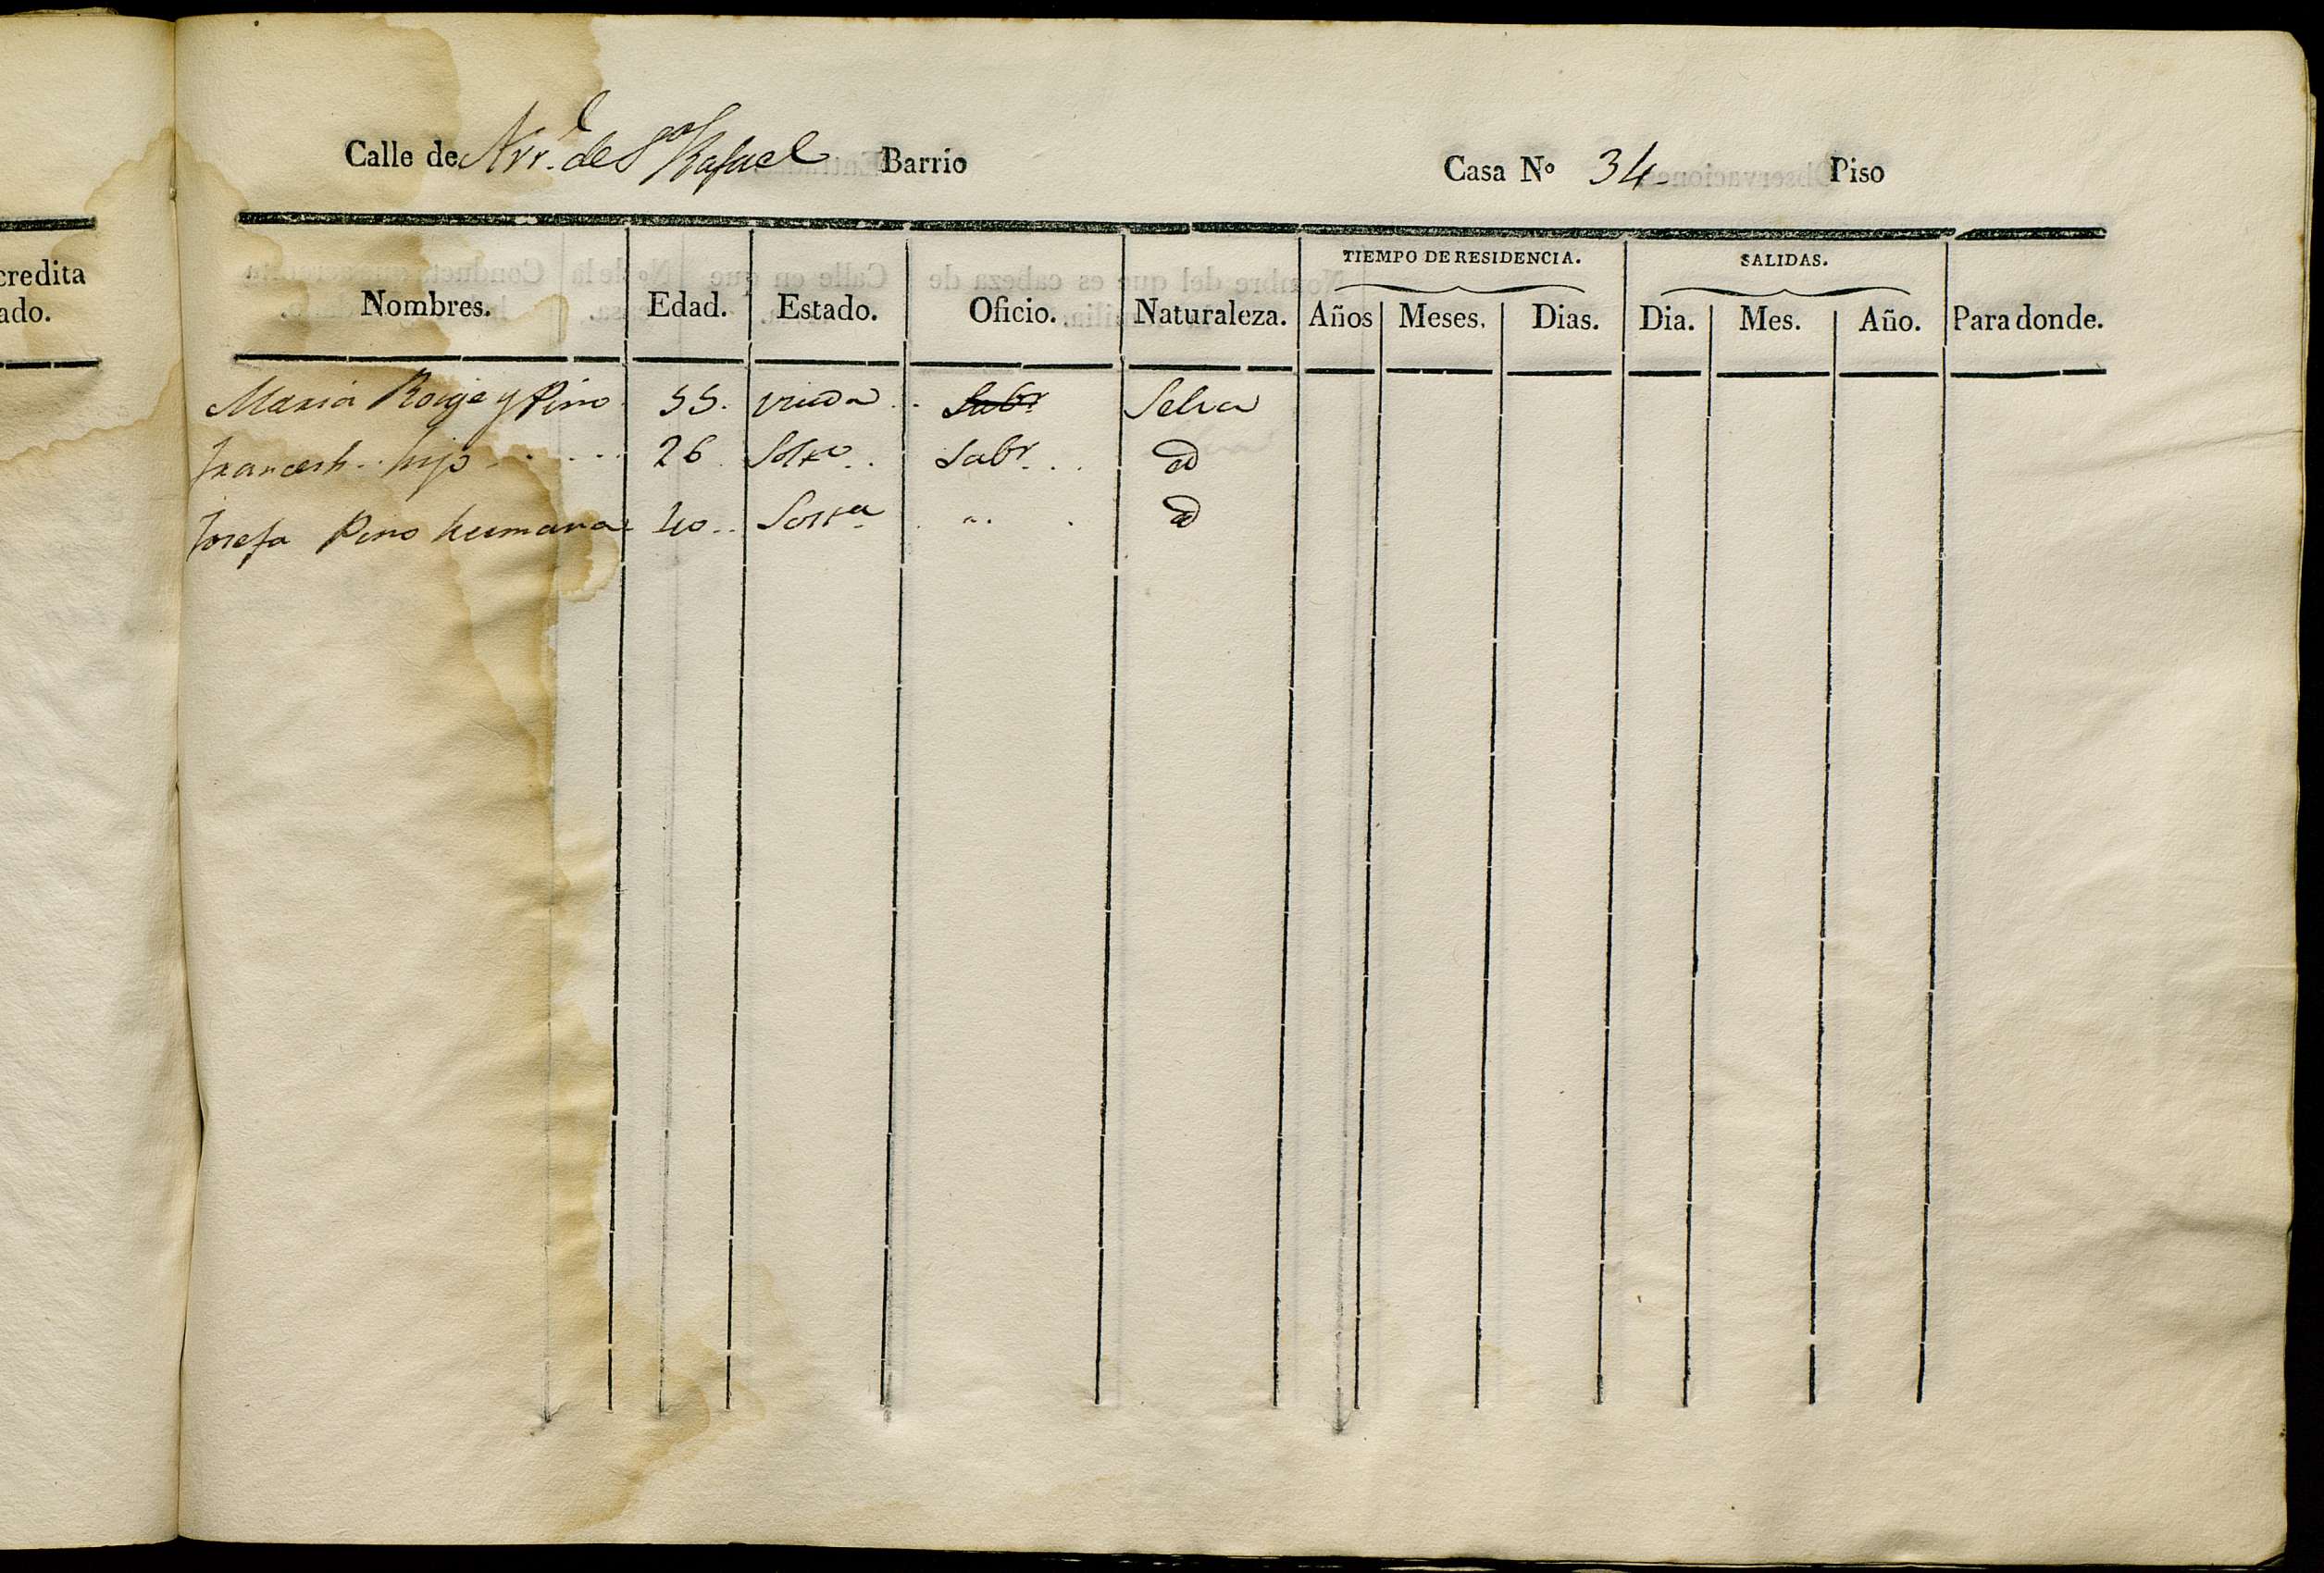 credita
ado.
Calle de Arr.l de Sn Rafael Barrio Casa No 34 Piso
TIEMPO DE RESIDENCIA. SALIDAS.
Nombres. Edad. Estado. Oficio. Naturaleza. Años Meses. Dias. Dia. Mes. Año. Para donde.
Maria Roige y Pino 55. viuda Labr Selva
Francesh.. hijo 26. Solto.. Labr... id
Josefa Pino hermana 40.. Solta ". . id